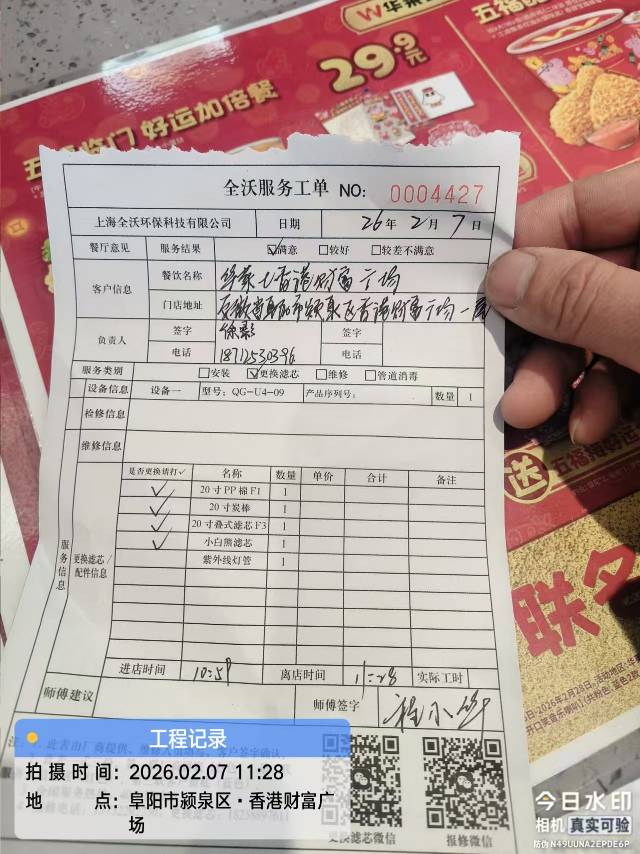 W 华莱
29.9元
五福临门 好运加倍餐
五福
全沃服务工单 NO: 0004427
上海全沃环保科技有限公司 日期 26年 2月 7日
餐厅意见 服务结果 ☑满意 □较好 □较差不满意
客户信息 餐饮名称 华莱士香港财富广场
门店地址 安徽省阜阳市颍泉区香港财富广场一层
负责人 签字 徐影 签字
电话 18712530396 电话
服务类别 □安装 ☑更换滤芯 □维修 □管道消毒
设备信息 设备一 型号: QG-U4-09 产品序列号: 数量 1
检修信息
维修信息
服务信息
更换滤芯/配件信息
是否更换请打✓ 名称 数量 单价 合计 备注
✓ 20寸PP棉F1 1
✓ 20寸炭棒 1
✓ 20寸叠式滤芯F3 1
✓ 小白熊滤芯 1
紫外线灯管 1
进店时间 10:58 离店时间 11:28 实际工时
师傅建议 师傅签字 程小华
更换滤芯微信 报修微信
送
联
工程记录
拍摄时间: 2026.02.07 11:28
地 点: 阜阳市颍泉区·香港财富广
场
今日水印
相机 真实可验
防伪 N49UUNA2EPDE6P